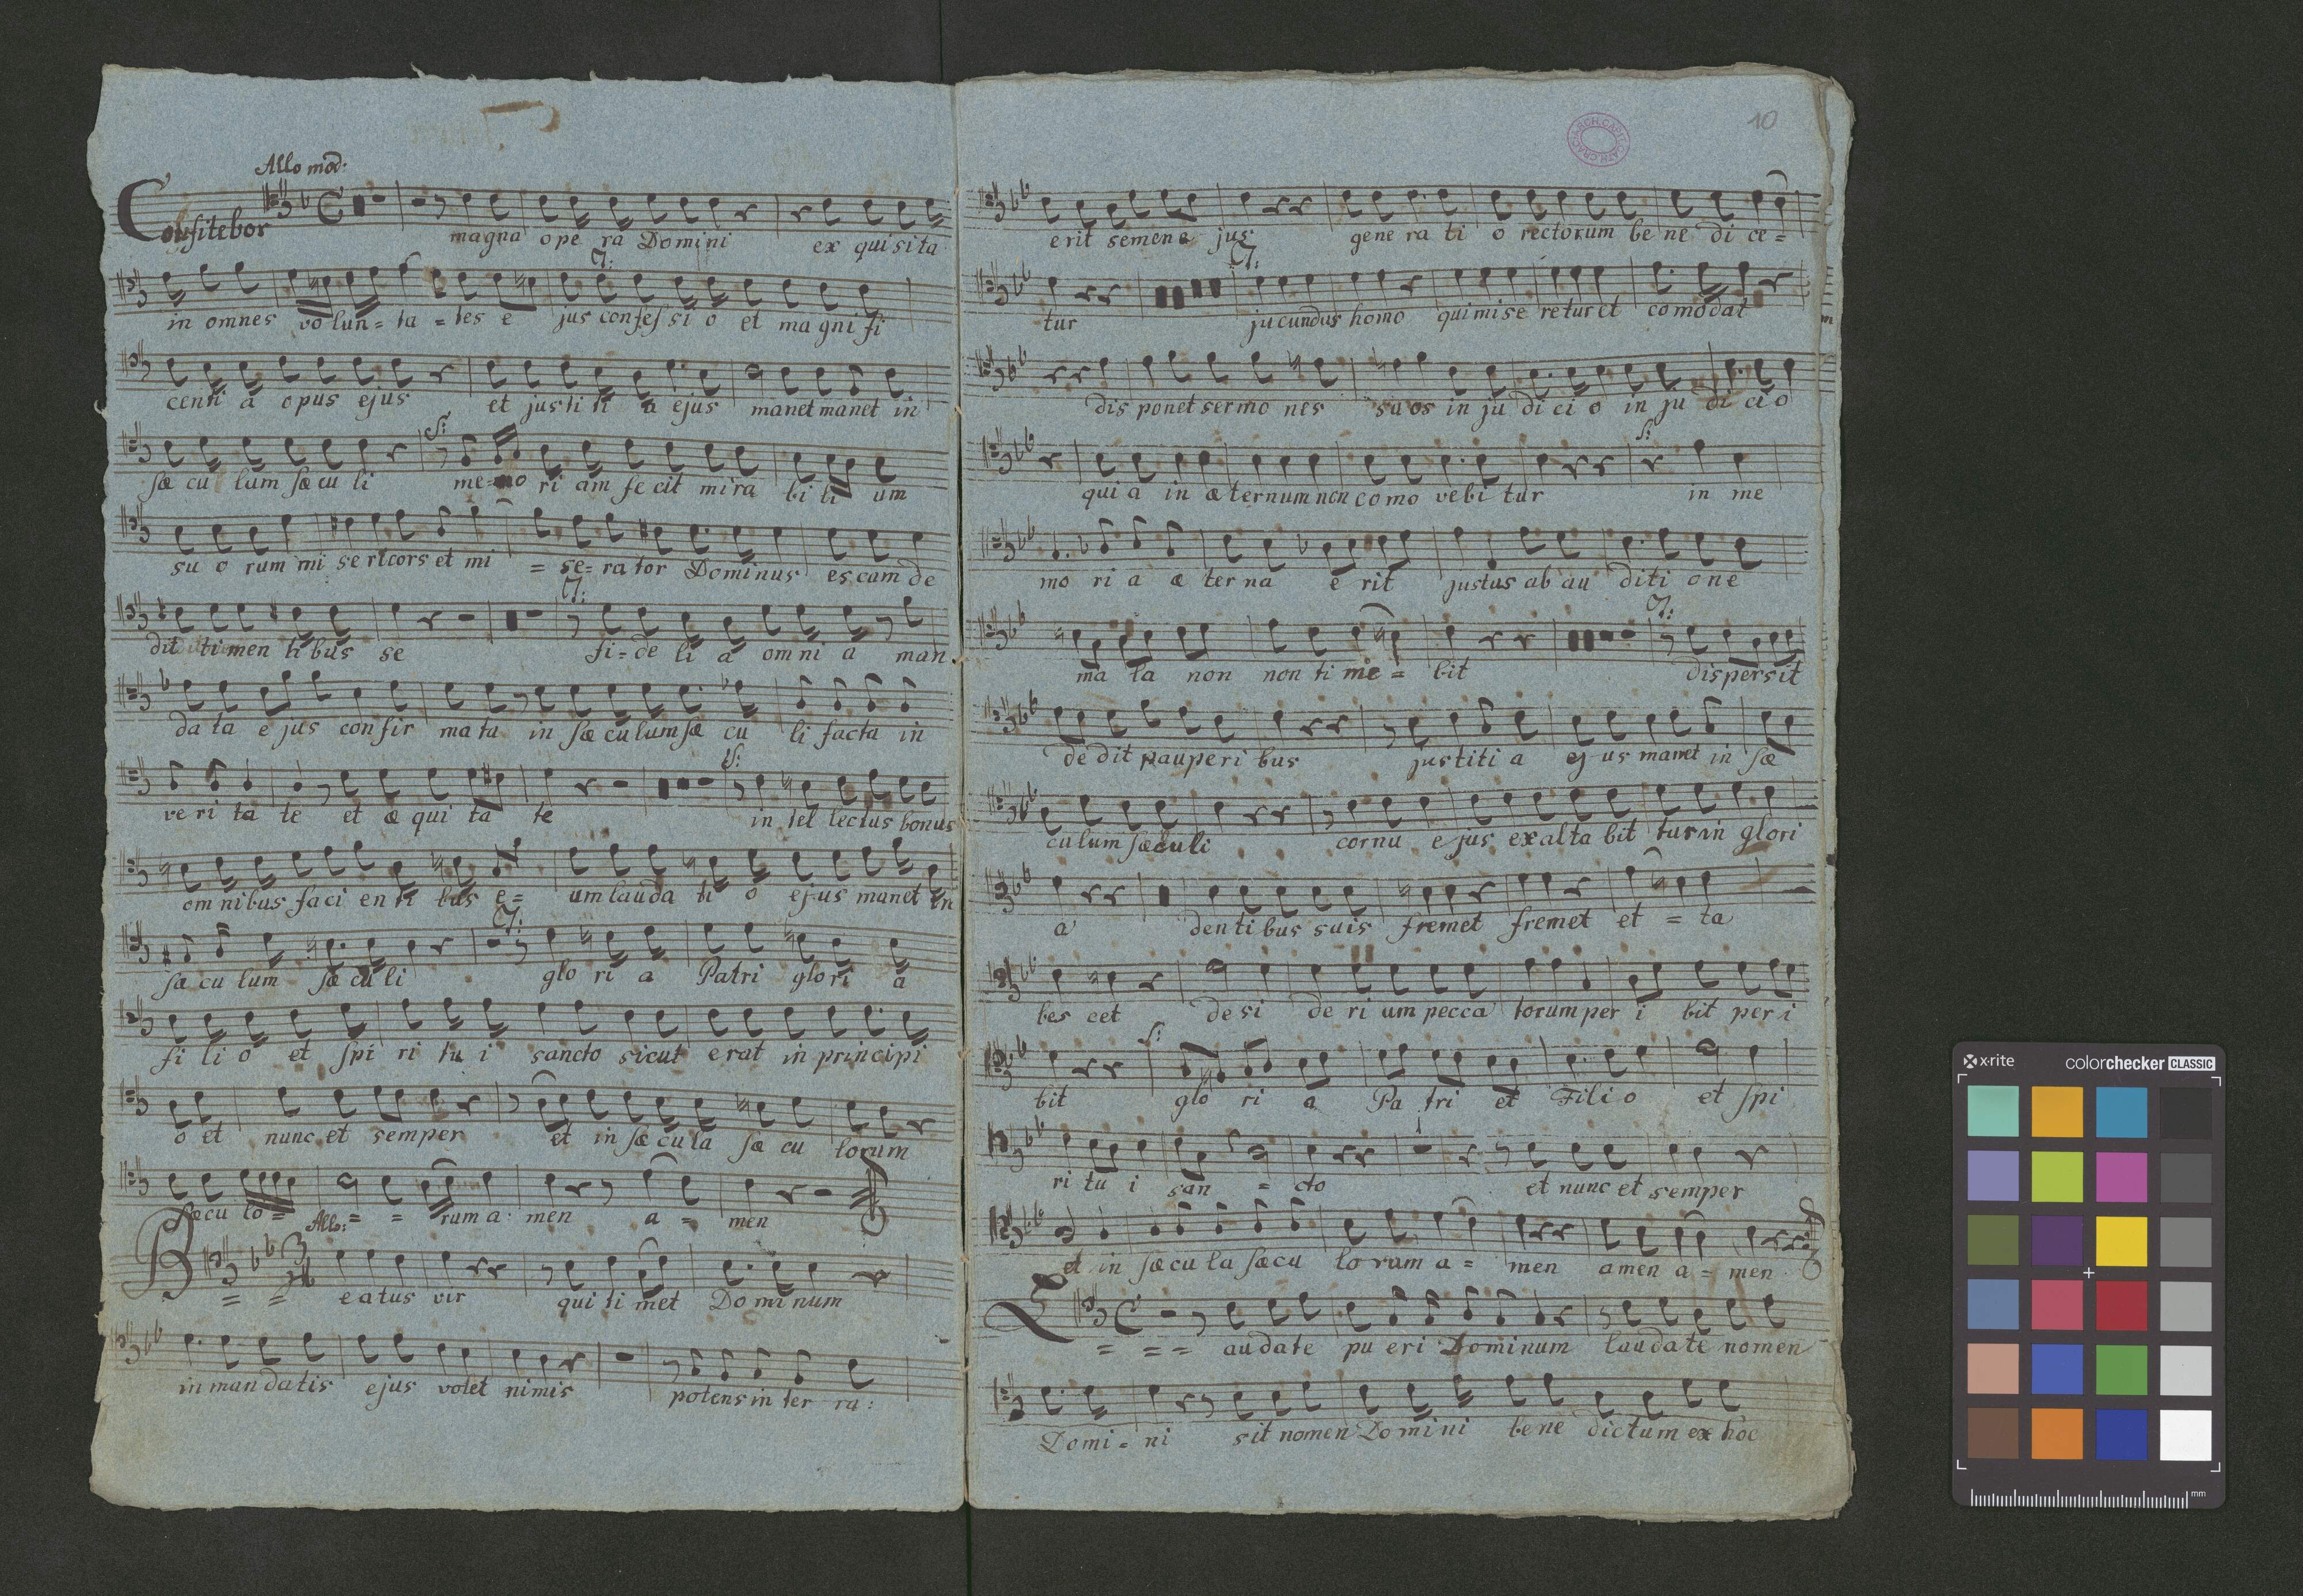 Allo mod:
Confitebor magna opera Domini ex quisita
in omnes volun = ta = tes e jus confessi o et magni fi
T:
centi a opus ejus et justi ti a ejus manet manet in
sæ cu lum sæ cu li me=mo ri am fe cit mira bi li um
S:
su o rum mi sericors et mi = se = ra tor Dominus escam de
dit timen ti bus se fi = de li a omni a man
T:
da ta e jus confir ma ta in sæ culum sæ cu li facta in
ve ri ta te et æ qui ta te in tel lectus bonus
S:
omnibus faci en ti bus e = um lauda ti o ejus manet in
sæ cu lum sæ cu li glo ri a Patri glo ri a
T:
fi li o et spi ri tu i sancto sicut erat in principi
o et nunc et semper et in sæ cu la sæ cu lorum
sæcu lo = = = rum a men a = men
Allo:
B = = eatus vir qui ti met Dominum
in mandatis ejus volet nimis potens in ter ra:
10
ARCH. CAPIT. CATH. CRACOV.
erit semen e jus gene ra ti o rectorum be ne di ce =
tur jucundus homo qui mise retur et comodat
T:
dis ponet sermo nes suos in ju di ci o in ju di ci o
qui a in æternum non como vebi tur in me
S:
mo ri a æ ter na e rit justus ab au diti one
ma la non non ti me = bit dispersit
T:
de dit pauperi bus justiti a ej us manet in sæ
culum sæculi cornu e jus exalta bit tur in glori
a dentibus suis fremet fremet et = ta
bes cet desi de ri um pecca torum per i bit peri
bit glo ri a Pa tri et Filio et spi
S:
ri tu i san = cto et nunc et semper
et in sæcu la sæcu lo rum a = men amen a = men
L = = = audate pu eri Dominum laudate nomen
Domi = ni sit nomen Domini bene dictum ex hoc
x·rite colorchecker CLASSIC
mm